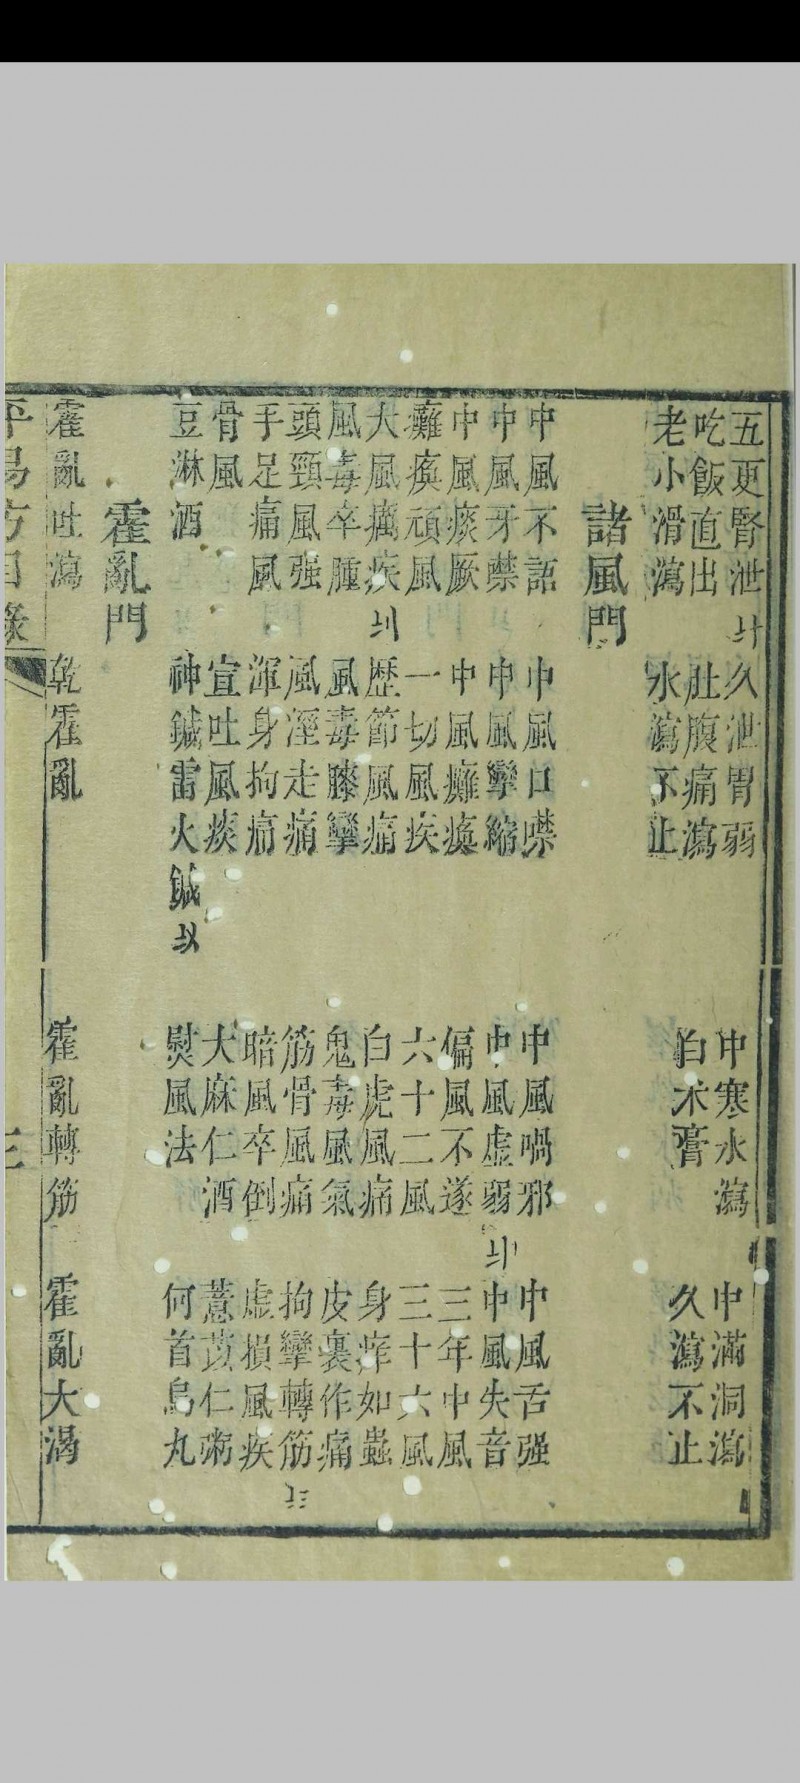 五更腎泄 久泄胃弱 中寒水瀉 中滿洞瀉
吃飯直出 肚腹痛瀉 白朮膏 久瀉不止
老小滑瀉 水瀉不止
諸風門
中風不語 中風口噤 中風喎邪 中風舌强
中風牙噤 中風攣縮 中風虛弱 中風失音
中風痰厥 中風癱瘓 偏風不遂 三年中風
癱瘓頑風 一切風疾 六十二風 三十六風
大風癘疾 歴節風痛 白虎風痛 身痒如蟲
風毒卒腫 風毒膝攣 鬼毒風氣 皮裏作痛
頭頸風强 風溼走痛 筋骨風痛 拘攣轉筋
手足痛風 渾身拘痛 暗風卒倒 虛損風疾
骨風 宣吐風痰 大麻仁酒 薏苡仁粥
豆淋酒 神鍼雷火鍼 熨風法 何首烏丸
霍亂門
霍亂吐瀉 乾霍亂 霍亂轉筋 霍亂大渴
平易方目錄 三